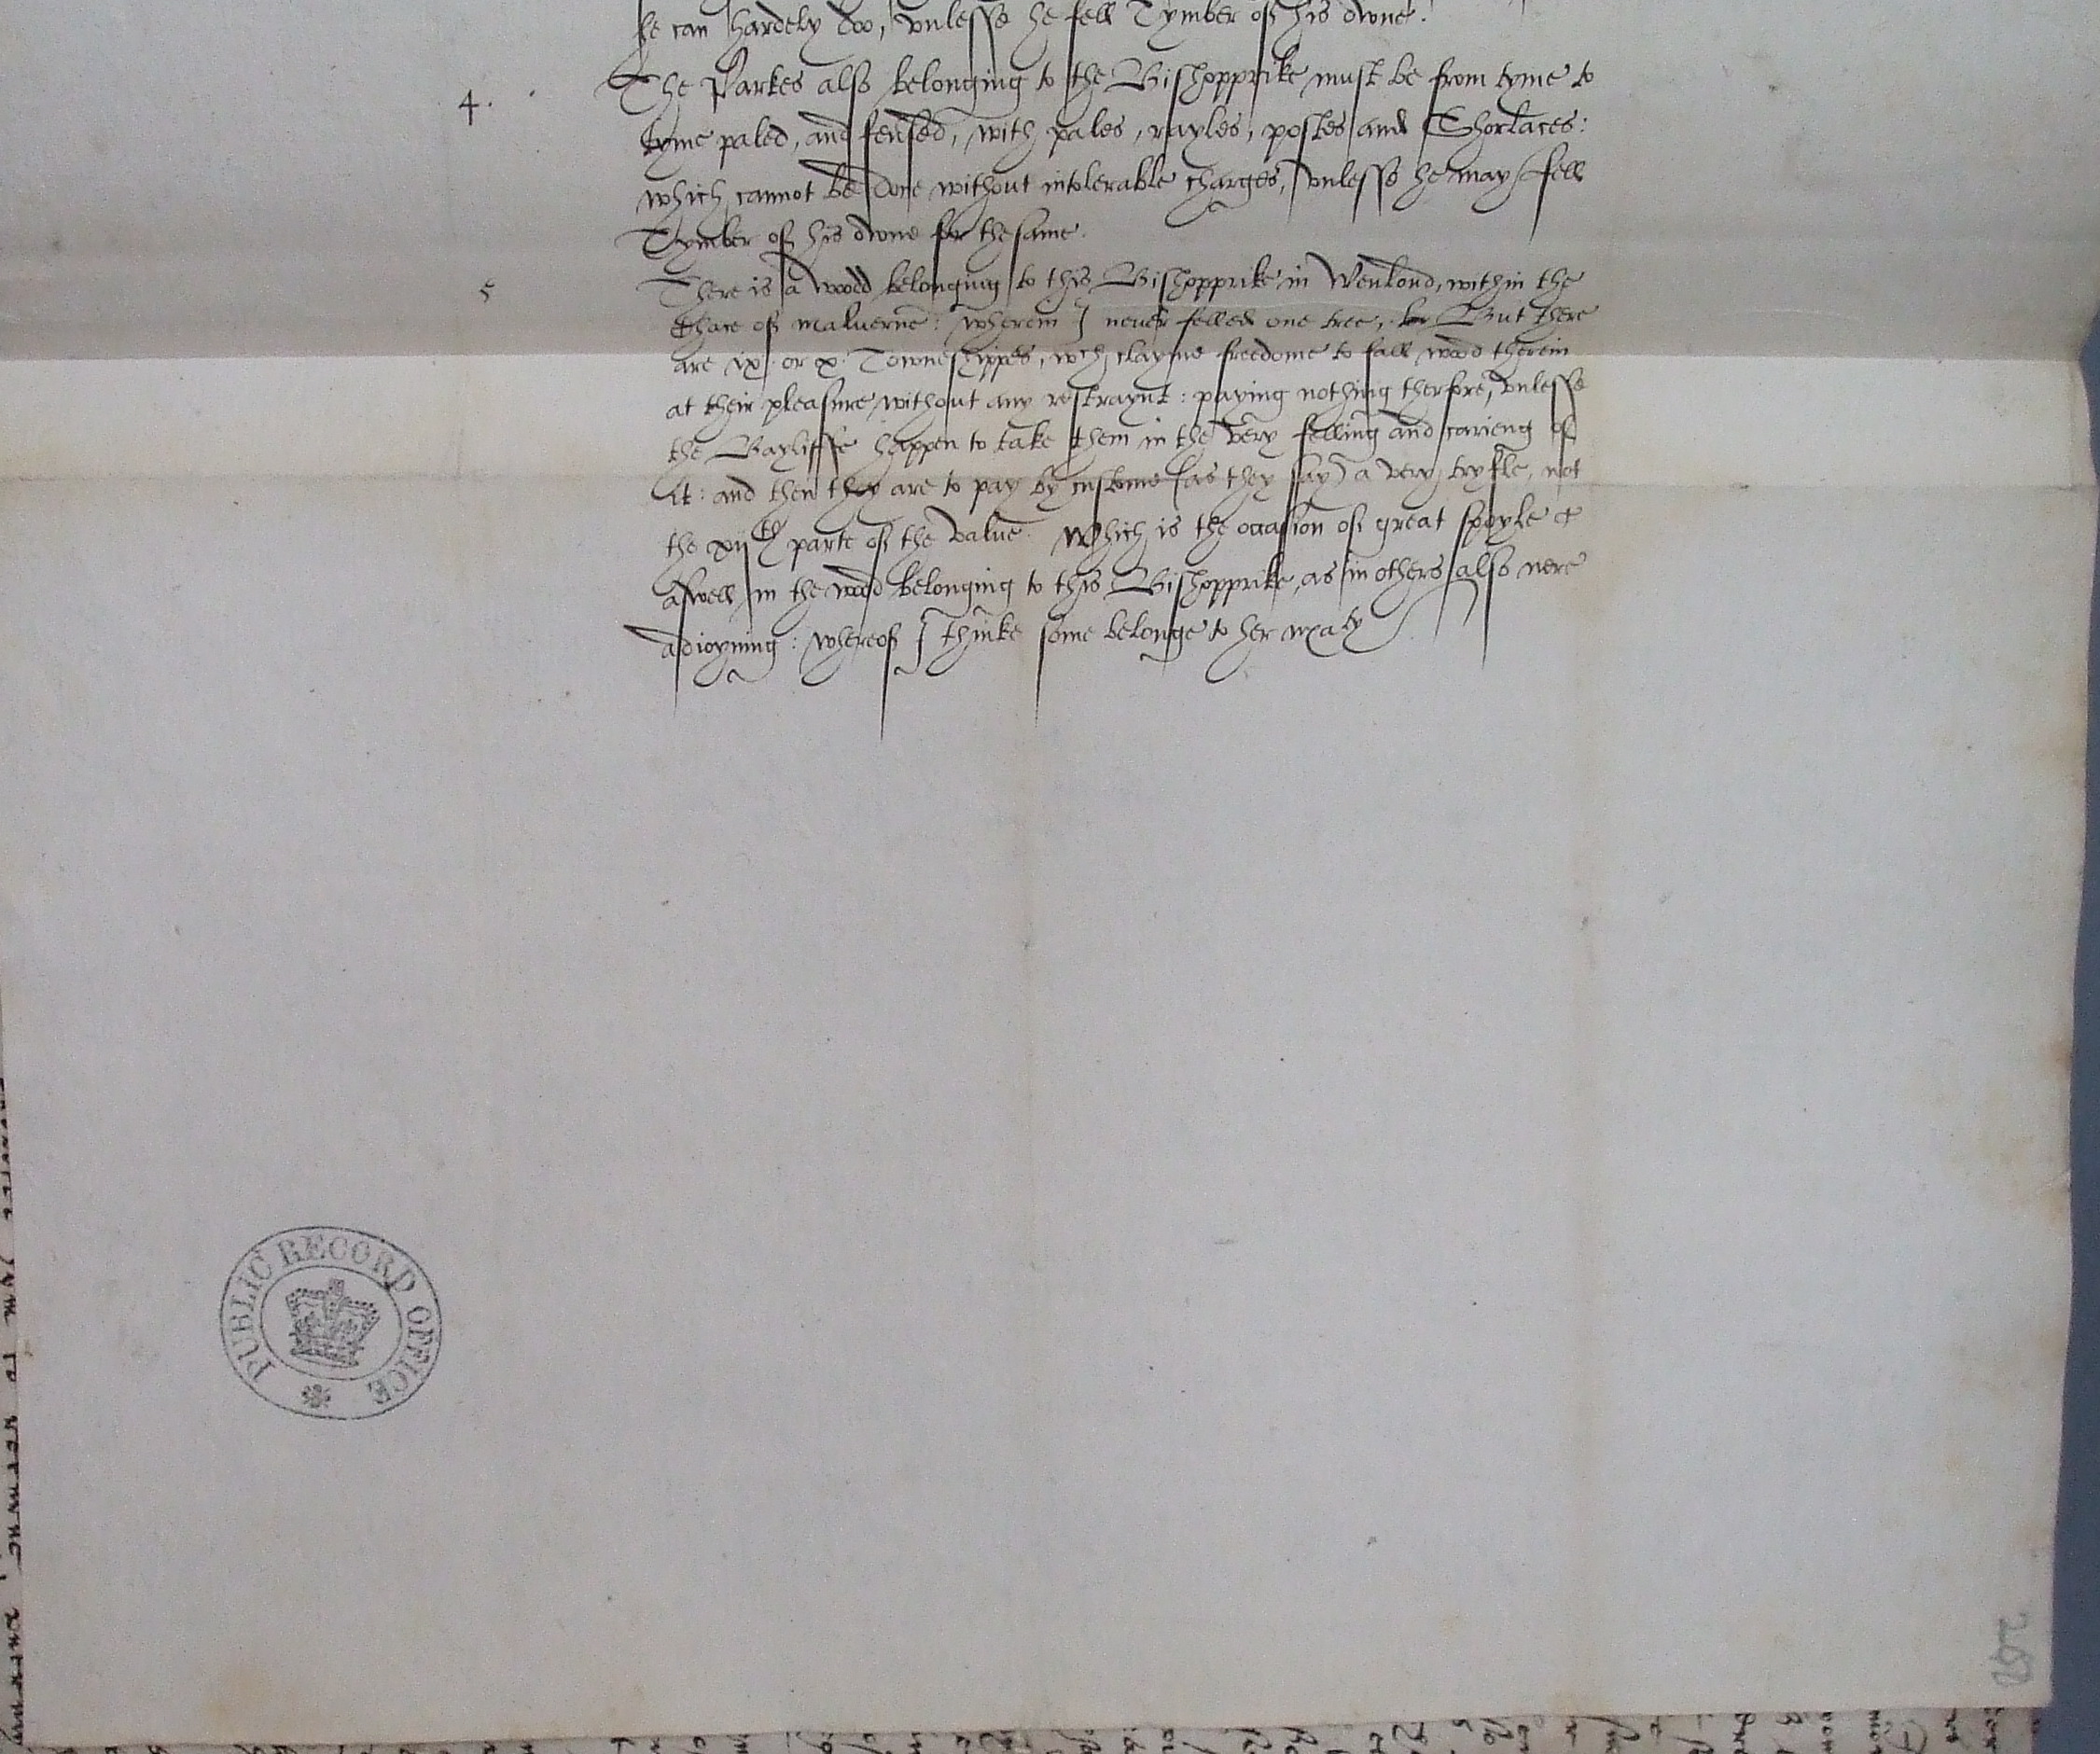 he can hardely doo, vnlesse he fell Tymber of his owne.
4. The Parkes also belonging to the Bishopprike must be from tyme to
tyme paled, and fensed, with pales, rayles, postes and Shorlaces:
which cannot be done without intolerable charges, vnlesse he may fell
Tymber of his owne for the same.
5 There is a wood belonging to this Bishopprike in Wenlond, within the
chace of malverne: wherein I never felled one tree, But there
are ix. or x. Towneshippes, wch clayme freedome to fall wood therein
at their pleasure without any restraynt: paying nothing therfore, vnlesse
the Bayliffe happen to take them in the very felling and carieng of
it: and then they are to pay by custome (as they say) a very tryfle, not
the xijth parte of the value. Which is the occasion of great spoyle
aswell in the wood belonging to this Bishopprike, as in others also nere
adioyning: whereof I thinke some belonge to her maty
PUBLIC RECORD OFFICE